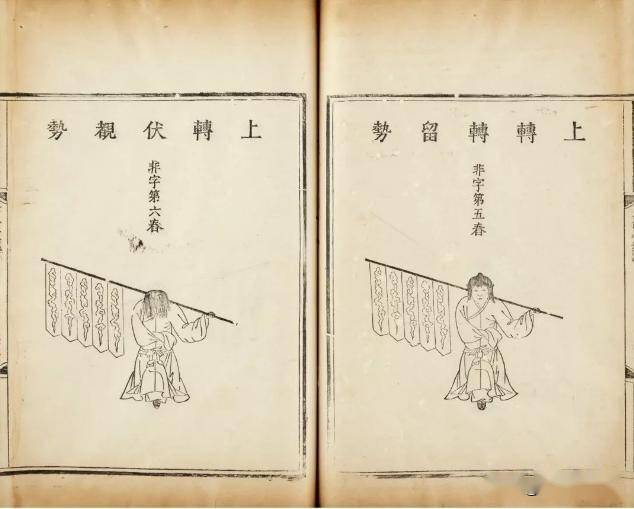 上轉轉留勢
非字第五舂
上轉伏覩勢
非字第六舂